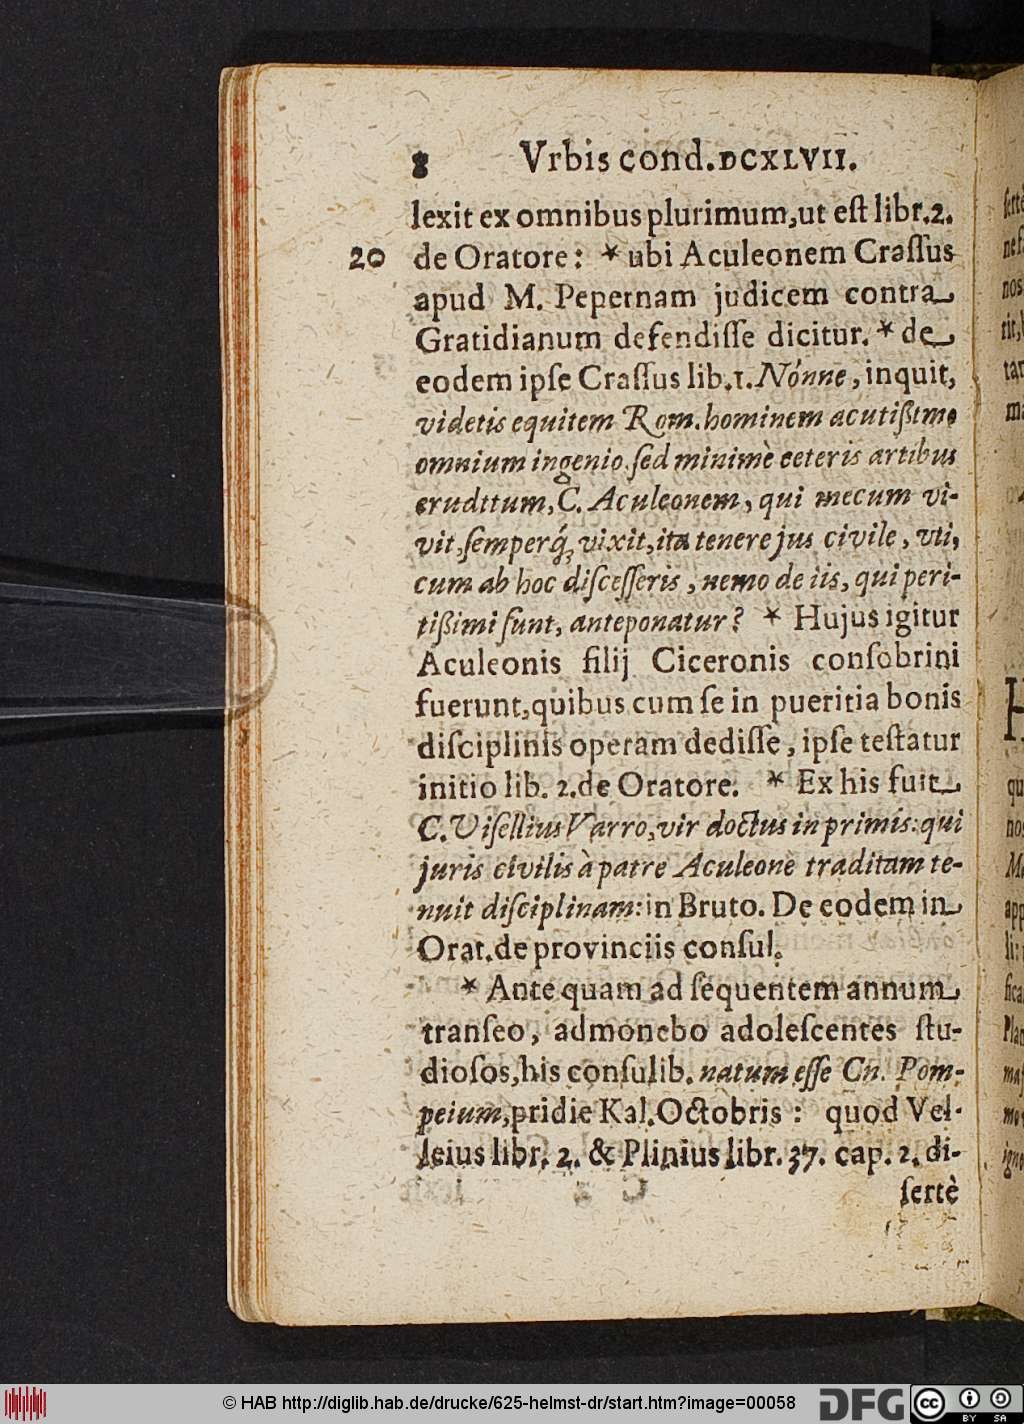 8 Vrbis cond.DCXLVII.
lexit ex omnibus plurimum,ut eſt libr.2.
20 de Oratore: * ubi Aculeonem Craſſus
apud M. Pepernam judicem contra
Gratidianum defendiſſe dicitur. * de
eodem ipſe Craſſus lib.1. Nónne, inquit,
videtis equitem Rom. hominem acutißimo
omnium ingenio, ſed minimè ceteris artibus
eruditum, C. Aculeonem, qui mecum vi-
vit, ſemperq́; vixit, ita tenere jus civile, vti,
cum ab hoc diſceſſeris, nemo de iis, qui peri-
tißimi ſunt, anteponatur? * Hujus igitur
Aculeonis filij Ciceronis conſobrini
fuerunt, quibus cum ſe in pueritia bonis
diſciplinis operam dediſſe, ipſe teſtatur
initio lib. 2. de Oratore. * Ex his fuit
C. Viſellius Varro, vir doctus in primis: qui
juris civilis à patre Aculeone traditam te-
nuit diſciplinam: in Bruto. De eodem in
Orat. de provinciis conſul.
* Ante quam ad ſequentem annum
tranſeo, admonebo adoleſcentes ſtu-
dioſos, his conſulib. natum eſſe Cn. Pom-
peium, pridie Kal. Octobris: quod Vel-
leius libr. 2. & Plinius libr. 37. cap. 2. di-
ſertè
© HAB http://diglib.hab.de/drucke/625-helmst-dr/start.htm?image=00058
DFG
cc BY SA